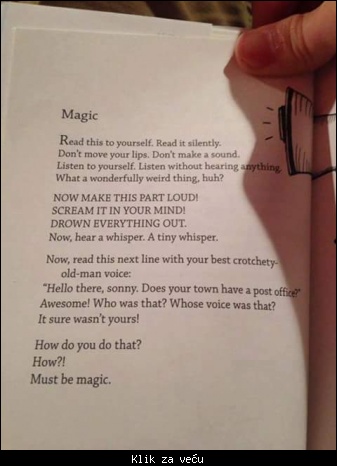 Magic
Read this to yourself. Read it silently.
Don't move your lips. Don't make a sound.
Listen to yourself. Listen without hearing anything.
What a wonderfully weird thing, huh?
NOW MAKE THIS PART LOUD!
SCREAM IT IN YOUR MIND!
DROWN EVERYTHING OUT.
Now, hear a whisper. A tiny whisper.
Now, read this next line with your best crotchety-
old-man voice:
"Hello there, sonny. Does your town have a post office?"
Awesome! Who was that? Whose voice was that?
It sure wasn't yours!
How do you do that?
How?!
Must be magic.
Klik za veću